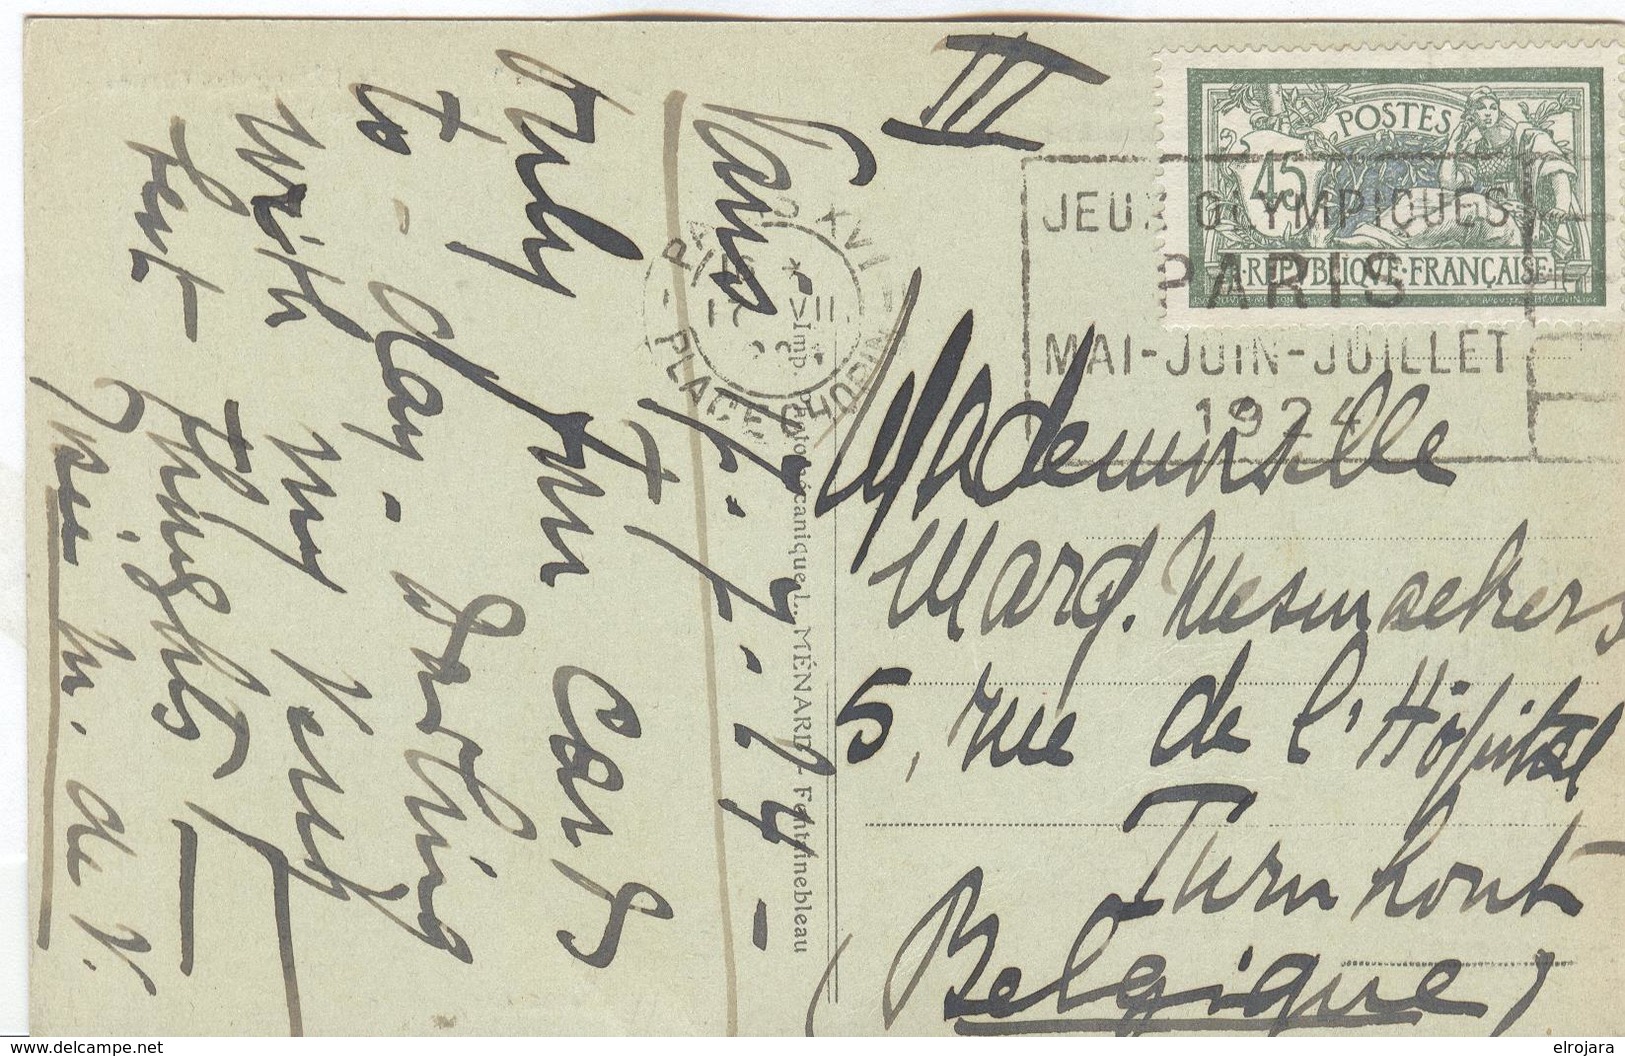 III
POSTES
45
REPUBLIQUE·FRANÇAISE
JEUX OLYMPIQUES
PARIS
MAI-JUIN-JUILLET
1924
PARIS XVI
PLACE CHOPIN
VII
Paris 17-7-24-
Only four cards
to-day-
with my very
best thoughts
M. de V.
Imp. Photomécanique L. MÉNARD - Fontainebleau
Mademoiselle
Marg. Mesmaekers
5, rue de l'Hôpital
Turnhout
(Belgique)
www.delcampe.net
elrojara